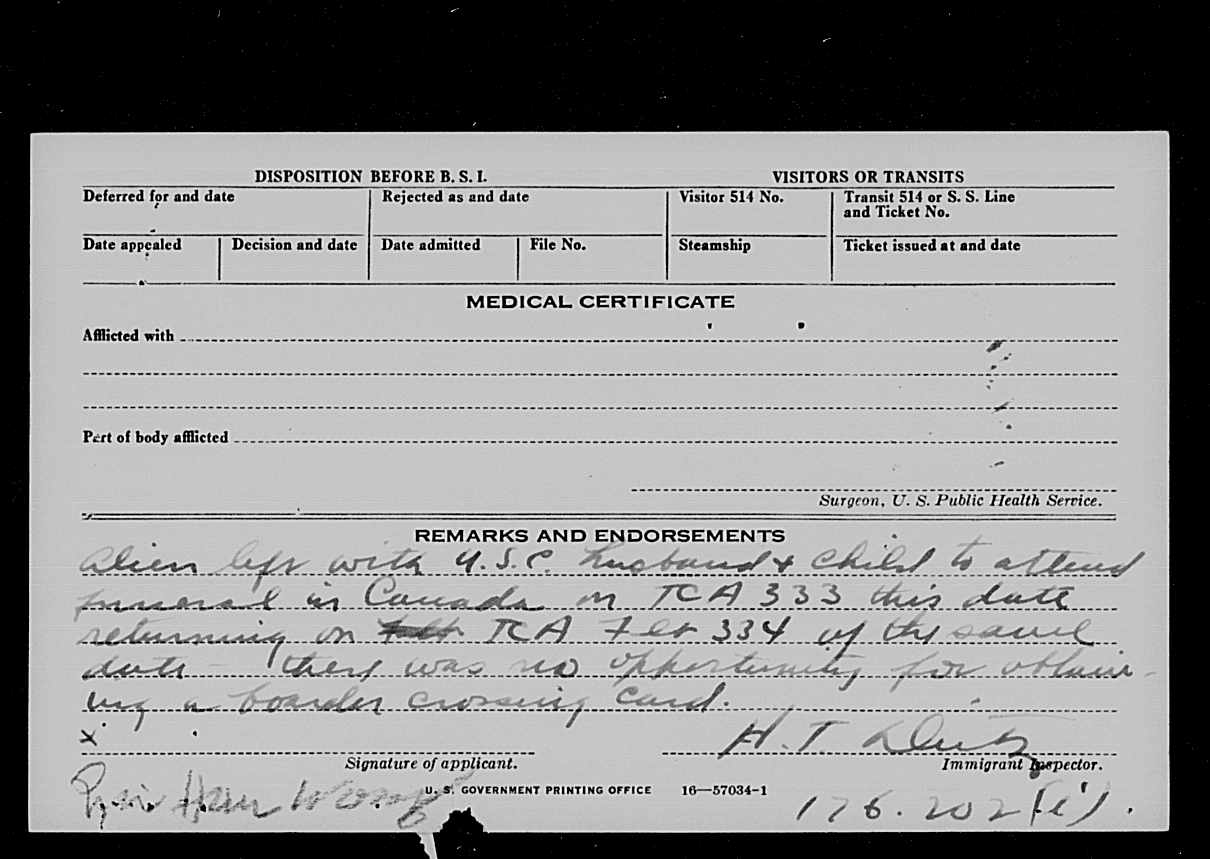 DISPOSITION BEFORE B. S. I.
VISITORS OR TRANSITS
Deferred for and date
Rejected as and date
Visitor 514 No.
Transit 514 or S. S. Line
and Ticket No.
Date appealed
Decision and date
Date admitted
File No.
Steamship
Ticket issued at and date
MEDICAL CERTIFICATE
Afflicted with
Part of body afflicted
Surgeon, U. S. Public Health Service.
REMARKS AND ENDORSEMENTS
Alien left with U.S.C. husband & child to attend
funeral in Canada on TCA 333 this date
returning on TCA Flt 334 of the same
date - there was no opportunity for obtain-
ing a boarder crossing card.
x
H. T.
Signature of applicant.
Immigrant Inspector.
Wong
U. S. GOVERNMENT PRINTING OFFICE 16—57034-1
176.202(i).